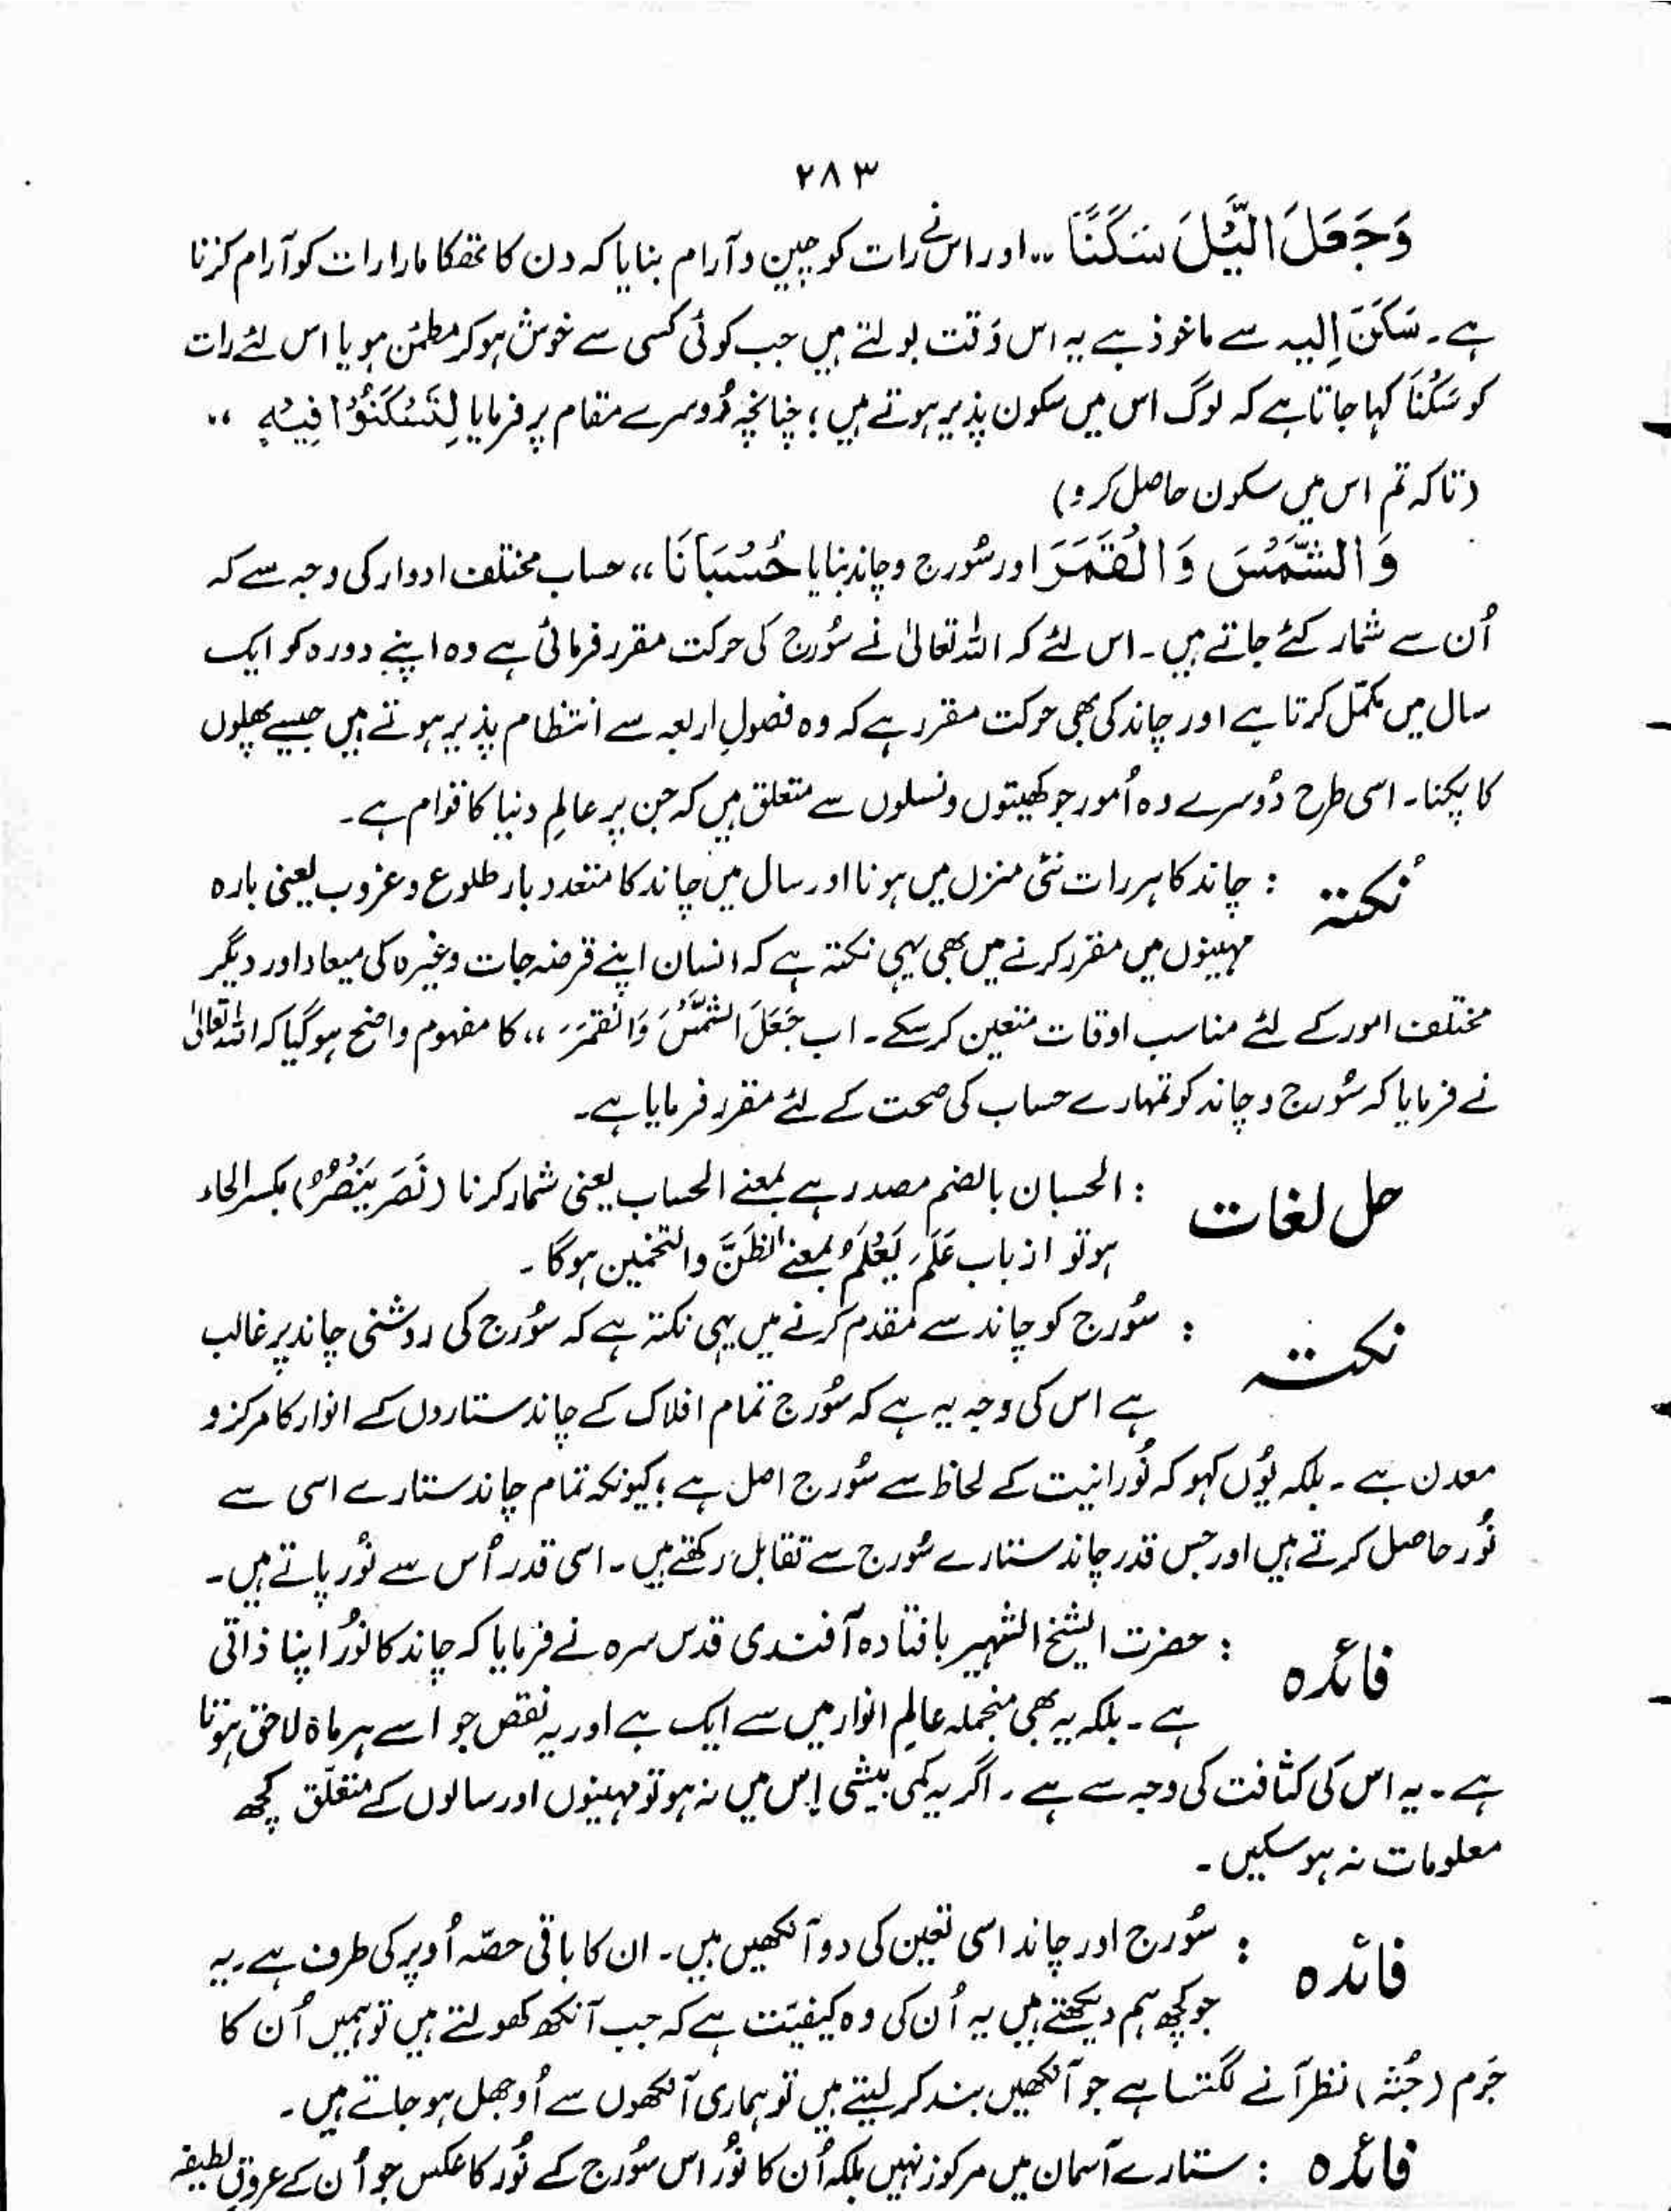 ۲۸۳
وَجَعَلَ الَّیْلَ سَکَنًا ،، اور اس نے رات کو چین و آرام بنایا کہ دن کا تھکا مارا رات کو آرام کرتا
ہے۔ سَکَنَ اِلیہ سے ماخوذ ہے یہ اس وَقت بولتے ہیں جب کوئی کسی سے خوش ہو کر مطمئن ہو یا اس لئے رات
کو سَکَنًا کہا جاتا ہے کہ لوگ اس میں سکون پذیر ہوتے ہیں ؛ چنانچہ دُوسرے مقام پر فرمایا لِتَسْکُنُوْا فِیْہِ ،،
(تاکہ تم اس میں سکون حاصل کرو)
وَ الشَّمْسَ وَ الْقَمَرَ اور سُورج و چاند بنایا حُسْبَانًا ،، حساب مختلف ادوار کی وجہ سے کہ
اُن سے شمار کئے جاتے ہیں۔ اس لئے کہ اللہ تعالیٰ نے سُورج کی حرکت مقرر فرمائی ہے وہ اپنے دورہ کو ایک
سال میں مکمّل کرتا ہے اور چاند کی بھی حرکت مقرر ہے کہ وہ فصولِ اربعہ سے انتظام پذیر ہوتے ہیں جیسے پھلوں
کا پکنا۔ اسی طرح دُوسرے وہ اُمور جو کھیتوں و نسلوں سے متعلق ہیں کہ جن پر عالمِ دنیا کا قوام ہے۔
نُکتہ : چاند کا ہر رات نئی منزل میں ہونا اور سال میں چاند کا متعدد بار طلوع و غروب یعنی بارہ
مہینوں میں مقرر کرنے میں بھی یہی نکتہ ہے کہ انسان اپنے قرضہ جات وغیرہ کی میعاد اور دیگر
مختلف امور کے لئے مناسب اوقات متعین کر سکے۔ اب جَعَلَ الشَّمْسَ وَ الْقَمَرَ ،، کا مفہوم واضح ہو گیا کہ اللہ تعالیٰ
نے فرمایا کہ سُورج و چاند کو تمہارے حساب کی صحت کے لئے مقرر فرمایا ہے۔
حل لغات : الحسبان بالضم مصدر ہے بمعنے الحساب یعنی شمار کرنا (نَصَرَ یَنْصُرُ) بکسر الحاء
ہو تو از باب عَلَمَ، یَعْلَمُ بمعنے الظَنَّ والتخمین ہوگا۔
نکتہ : سُورج کو چاند سے مقدم کرنے میں یہی نکتہ ہے کہ سُورج کی روشنی چاند پر غالب
ہے اس کی وجہ یہ ہے کہ سُورج تمام افلاک کے چاند ستاروں کے انوار کا مرکز و
معدن ہے۔ بلکہ یُوں کہو کہ نُورانیت کے لحاظ سے سُورج اصل ہے ؛ کیونکہ تمام چاند ستارے اسی سے
نُور حاصل کرتے ہیں اور جس قدر چاند ستارے سُورج سے تقابل رکھتے ہیں۔ اسی قدر اُس سے نُور پاتے ہیں۔
فائدہ : حضرت الشیخ الشہیر بافتادہ آفندی قدس سرہ نے فرمایا کہ چاند کا نُور اپنا ذاتی
ہے۔ بلکہ یہ بھی منجملہ عالمِ انوار میں سے ایک ہے اور یہ نقص جو اسے ہر ماہ لاحق ہوتا
ہے۔ یہ اس کی کثافت کی وجہ سے ہے۔ اگر یہ کمی بیشی اِس میں نہ ہو تو مہینوں اور سالوں کے متعلّق کچھ
معلومات نہ ہو سکیں۔
فائدہ : سُورج اور چاند اسی تعین کی دو آنکھیں ہیں۔ ان کا باقی حصّہ اُوپر کی طرف ہے۔ یہ
جو کچھ ہم دیکھتے ہیں یہ اُن کی وہ کیفیّت ہے کہ جب آنکھ کھولتے ہیں تو ہمیں اُن کا
جَرم (جُثہ) نظر آنے لگتا ہے جو آنکھیں بند کر لیتے ہیں تو ہماری آنکھوں سے اُوجھل ہو جاتے ہیں۔
فائدہ : ستارے آسمان میں مرکوز نہیں بلکہ اُن کا نُور اس سُورج کے نُور کا عکس جو اُن کے عروقِ لطیفہ